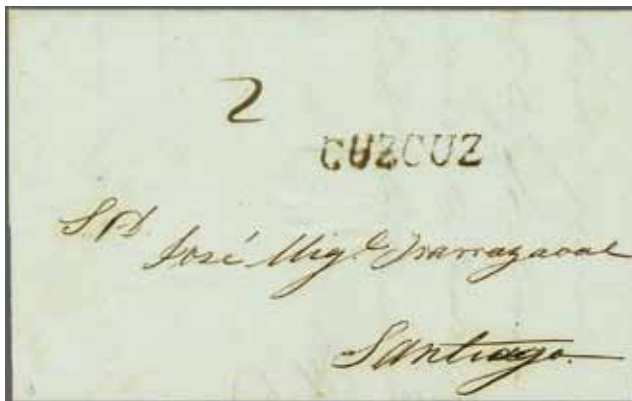 2
CUZCUZ
S D.
José Mig.l Irarrazaval
Santiago.